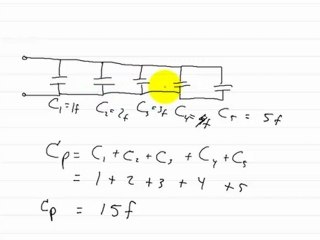 C₁=1f C₂=2f C₃=3f C₄=4f C₅ = 5f
Cp = C₁ + C₂ + C₃ + C₄ + C₅
= 1 + 2 + 3 + 4 + 5
Cp = 15f